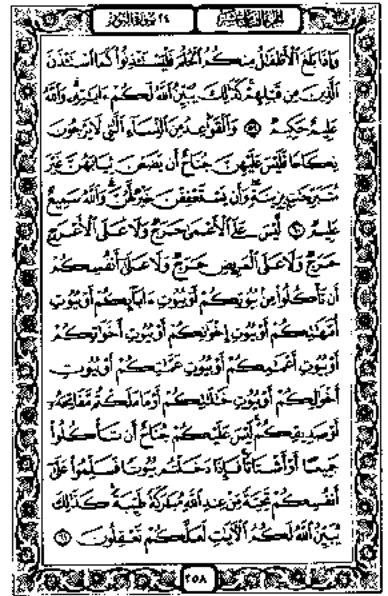 الجزء الثامن عشر ٢٤ سورة النور
وَإِذَا بَلَغَ الْأَطْفَالُ مِنكُمُ الْحُلُمَ فَلْيَسْتَأْذِنُوا كَمَا اسْتَأْذَنَ
الَّذِينَ مِن قَبْلِهِمْ كَذَٰلِكَ يُبَيِّنُ اللَّهُ لَكُمْ ءَايَاتِهِ وَاللَّهُ
عَلِيمٌ حَكِيمٌ ٥٩ وَالْقَوَاعِدُ مِنَ النِّسَاءِ الَّاتِي لَا يَرْجُونَ
نِكَاحًا فَلَيْسَ عَلَيْهِنَّ جُنَاحٌ أَن يَضَعْنَ ثِيَابَهُنَّ غَيْرَ
مُتَبَرِّجَاتٍ بِزِينَةٍ وَأَن يَسْتَعْفِفْنَ خَيْرٌ لَّهُنَّ وَاللَّهُ سَمِيعٌ
عَلِيمٌ ٦٠ لَّيْسَ عَلَى الْأَعْمَىٰ حَرَجٌ وَلَا عَلَى الْأَعْرَجِ
حَرَجٌ وَلَا عَلَى الْمَرِيضِ حَرَجٌ وَلَا عَلَىٰ أَنفُسِكُمْ
أَن تَأْكُلُوا مِن بُيُوتِكُمْ أَوْ بُيُوتِ ءَابَائِكُمْ أَوْ بُيُوتِ
أُمَّهَاتِكُمْ أَوْ بُيُوتِ إِخْوَانِكُمْ أَوْ بُيُوتِ أَخَوَاتِكُمْ
أَوْ بُيُوتِ أَعْمَامِكُمْ أَوْ بُيُوتِ عَمَّاتِكُمْ أَوْ بُيُوتِ
أَخْوَالِكُمْ أَوْ بُيُوتِ خَالَاتِكُمْ أَوْ مَا مَلَكْتُم مَّفَاتِحَهُ
أَوْ صَدِيقِكُمْ لَيْسَ عَلَيْكُمْ جُنَاحٌ أَن تَأْكُلُوا
جَمِيعًا أَوْ أَشْتَاتًا فَإِذَا دَخَلْتُم بُيُوتًا فَسَلِّمُوا عَلَىٰ
أَنفُسِكُمْ تَحِيَّةً مِّنْ عِندِ اللَّهِ مُبَارَكَةً طَيِّبَةً كَذَٰلِكَ
يُبَيِّنُ اللَّهُ لَكُمُ الْآيَاتِ لَعَلَّكُمْ تَعْقِلُونَ ٦١
٣٥٨